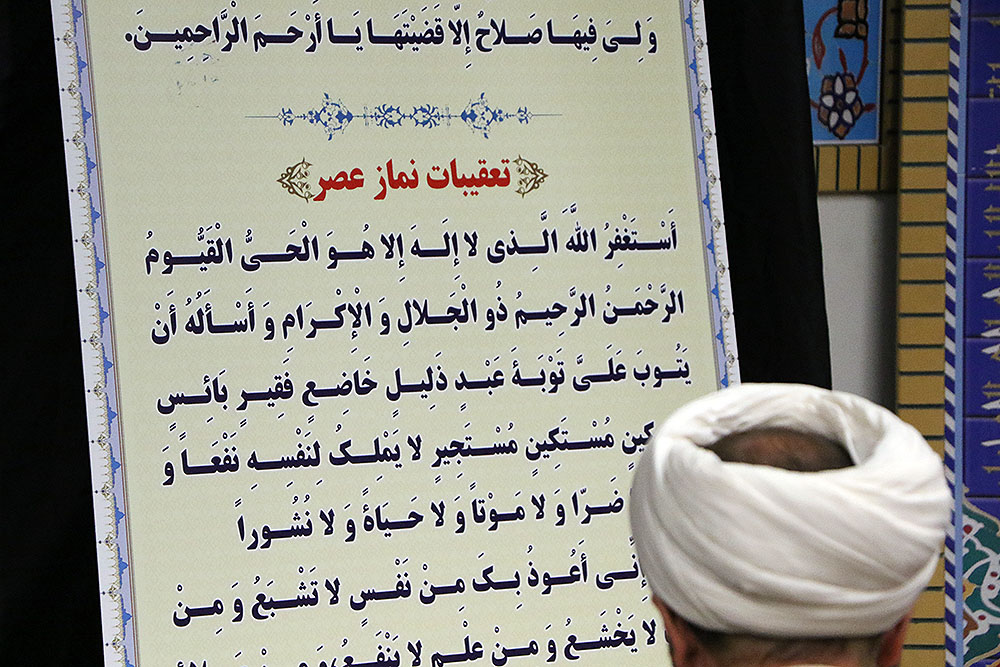 وَ لِیَ فِیهَا صَلاحٌ إِلّا قَضَیْتَهَا یَا أَرْحَمَ الْرَّاحِمِینَ.
تعقیبات نماز عصر
أَسْتَغْفِرُ اللّٰهَ الَّذِی لا إِلَهَ إِلا هُوَ الْحَیُّ الْقَیُّومُ
الرَّحْمَنُ الرَّحِیمُ ذُو الْجَلالِ وَ الْإِکْرَامِ وَ أَسْأَلُهُ أَنْ
یَتُوبَ عَلَیَّ تَوْبَةَ عَبْدٍ ذَلِیلٍ خَاضِعٍ فَقِیرٍ بَائِسٍ
مُسْتَکِینٍ مُسْتَجِیرٍ لا یَمْلِکُ لِنَفْسِهِ نَفْعَاً وَ
ضَرّا وَ لا مَوْتاً وَ لا حَیَاةً وَ لا نُشُوراً
إِنِّی أَعُوذُ بِکَ مِنْ نَفْسٍ لا تَشْبَعُ وَ مِنْ
لا یَخْشَعُ وَ مِنْ عِلْمٍ لا یَنْفَعُ،